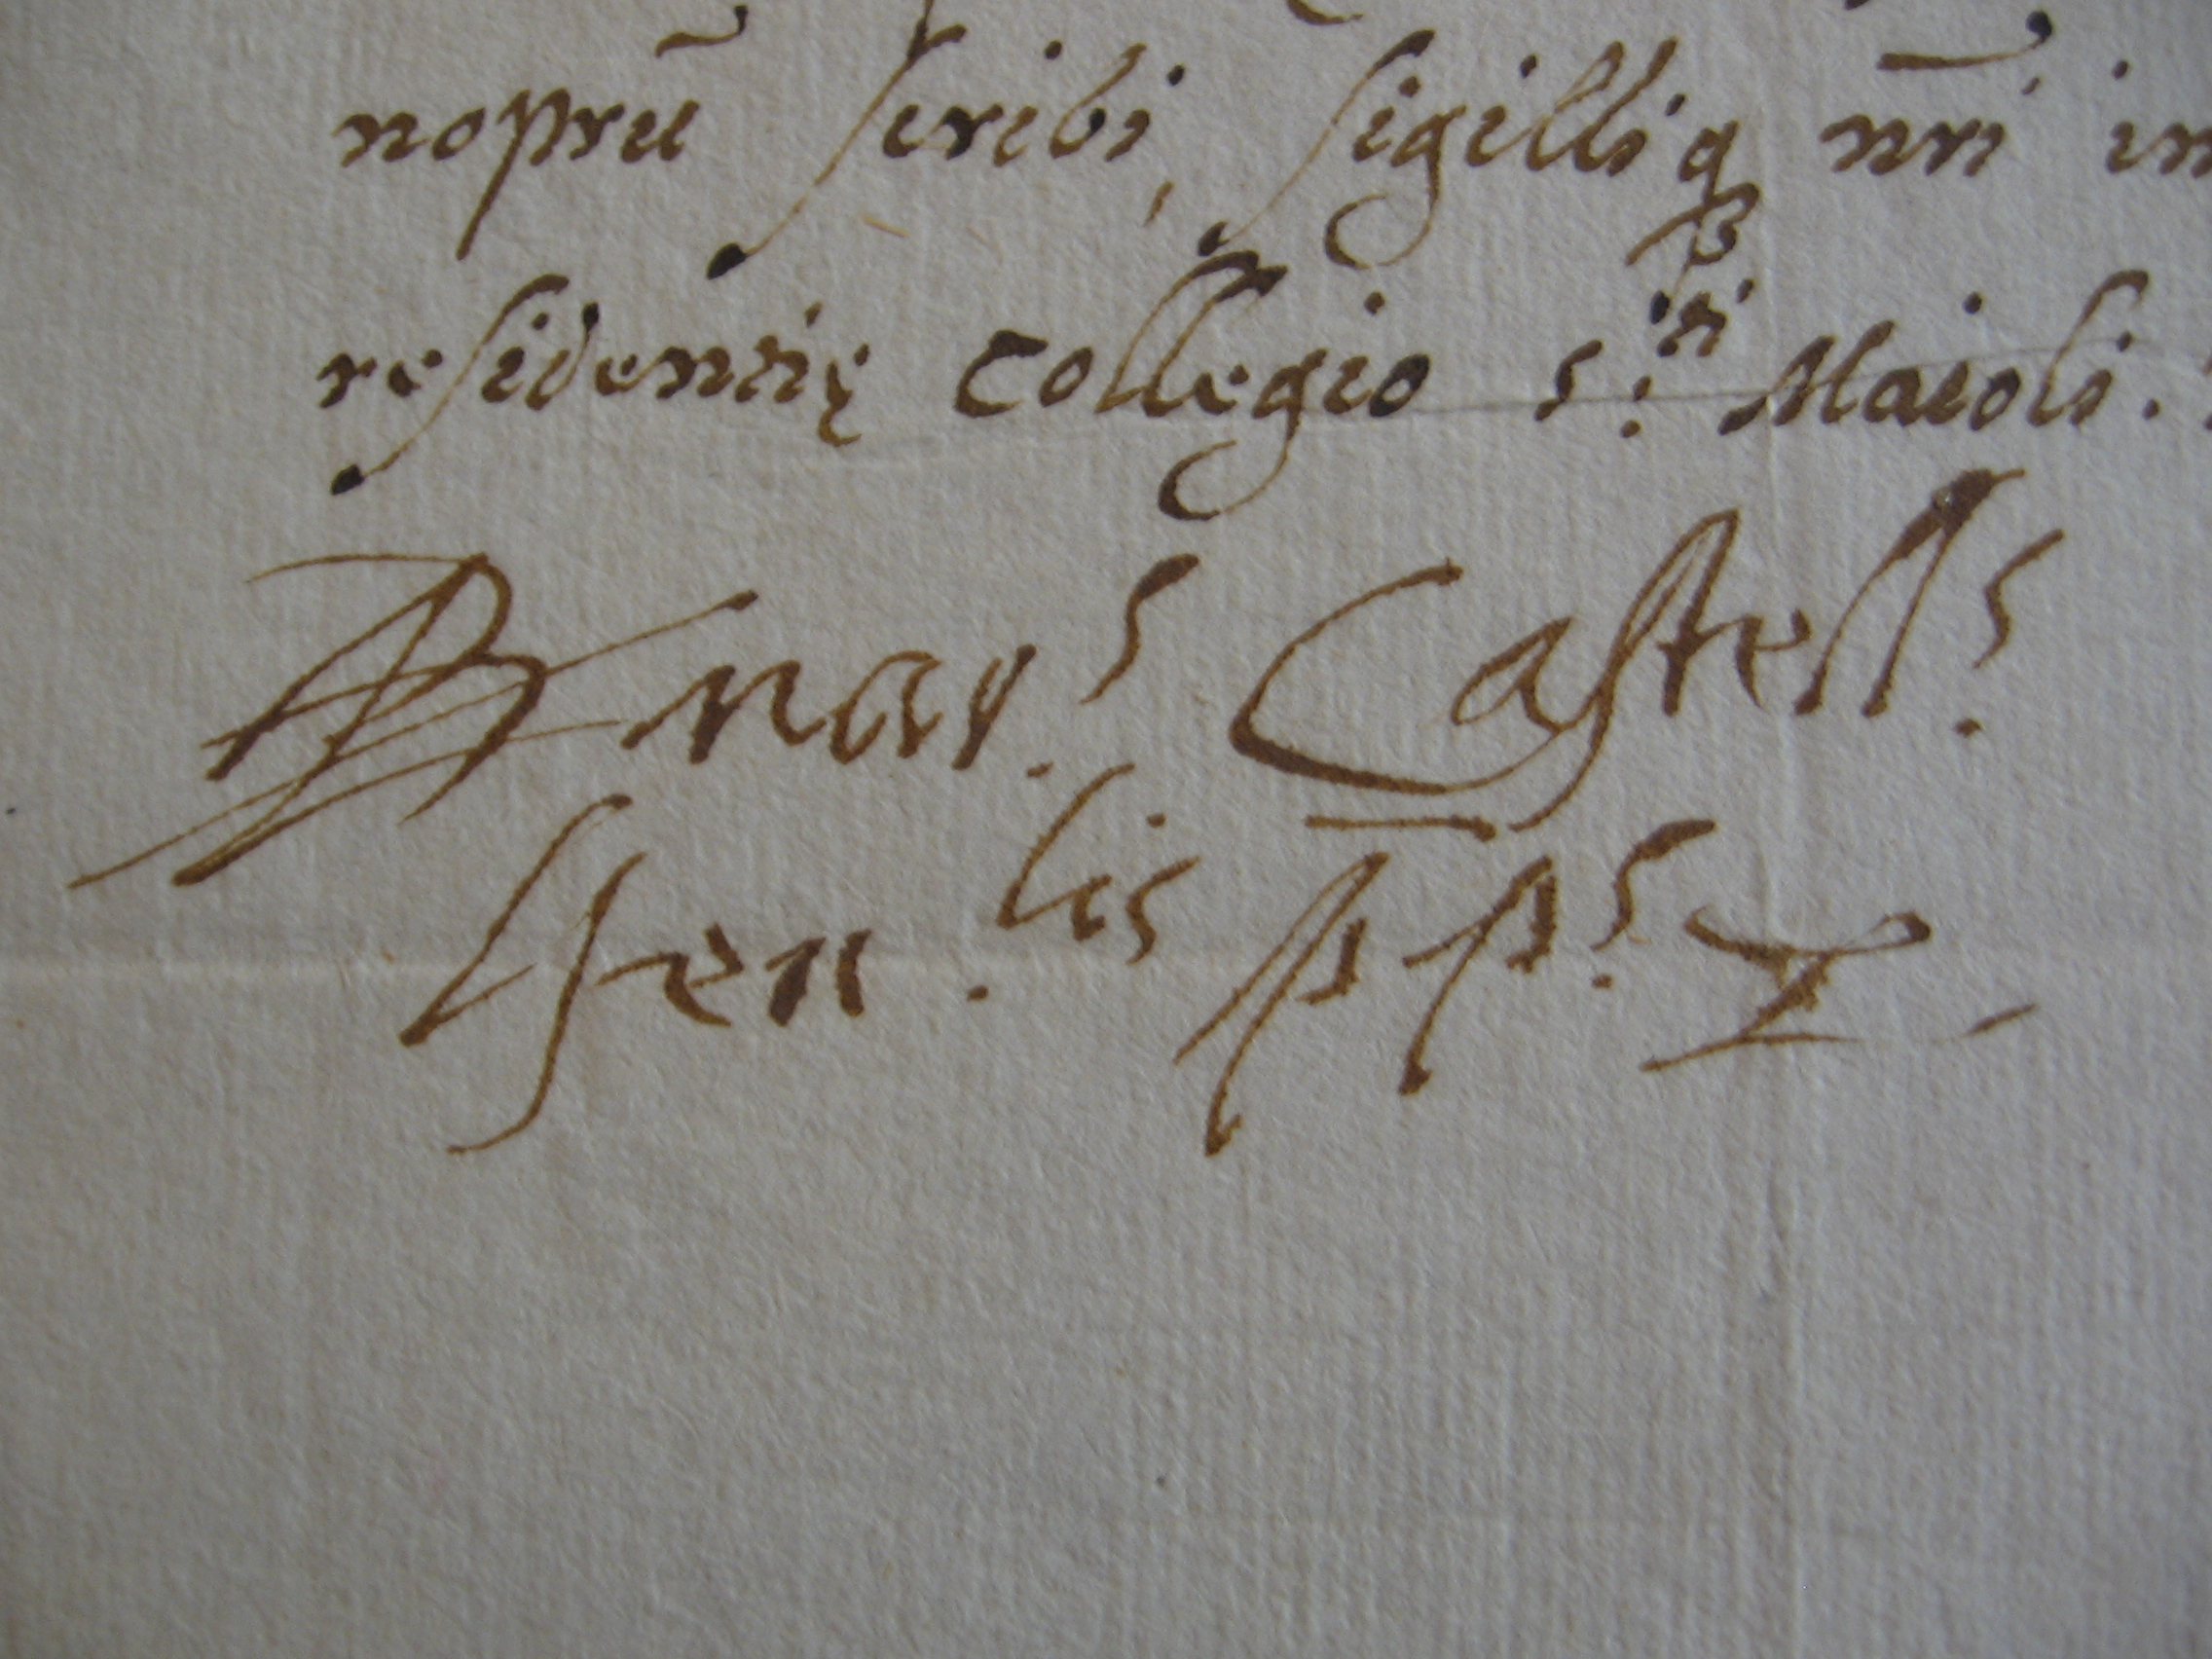 noprū scribi, sigilliq nr̄i in
residentię Collegio S.ti Maioli.
Bnar.s Castell.s
Gen.lis pp.s